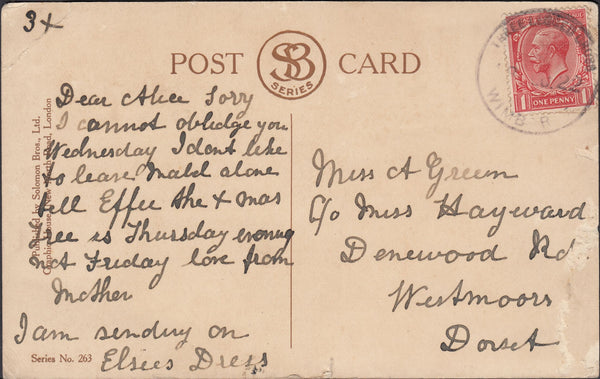 3+
POST CARD
SB
SERIES
ONE PENNY
1 1
Dear Alice Sorry
I cannot obledge you
Wednesday I dont like
to leave Mald alone
tell Effee the X mas
Tree is Thursday evening
not Friday love from
Mother
I am sending on
Elsies Dress
Miss A Green
C/o Miss Hayward
Denewood Rd.
Westmoors
Dorset
Published by Solomon Bros., Ltd.
London
Series No. 263